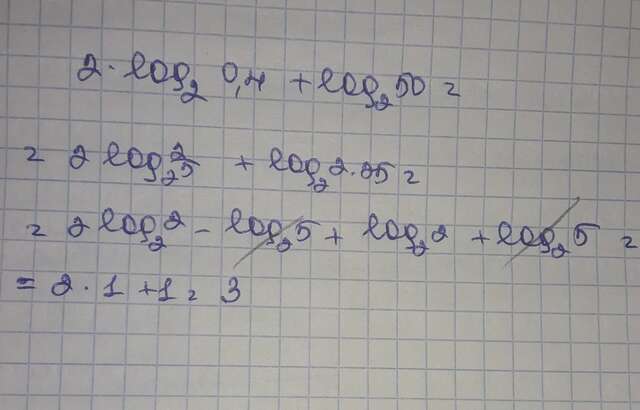 2 · log₂ 0,4 + log₂ 50 =
= 2 log₂ 2/5 + log₂ 2·25 =
= 2 log₂ 2 - log₂ 5 + log₂ 2 + log₂ 5 =
= 2 · 1 + 1 = 3